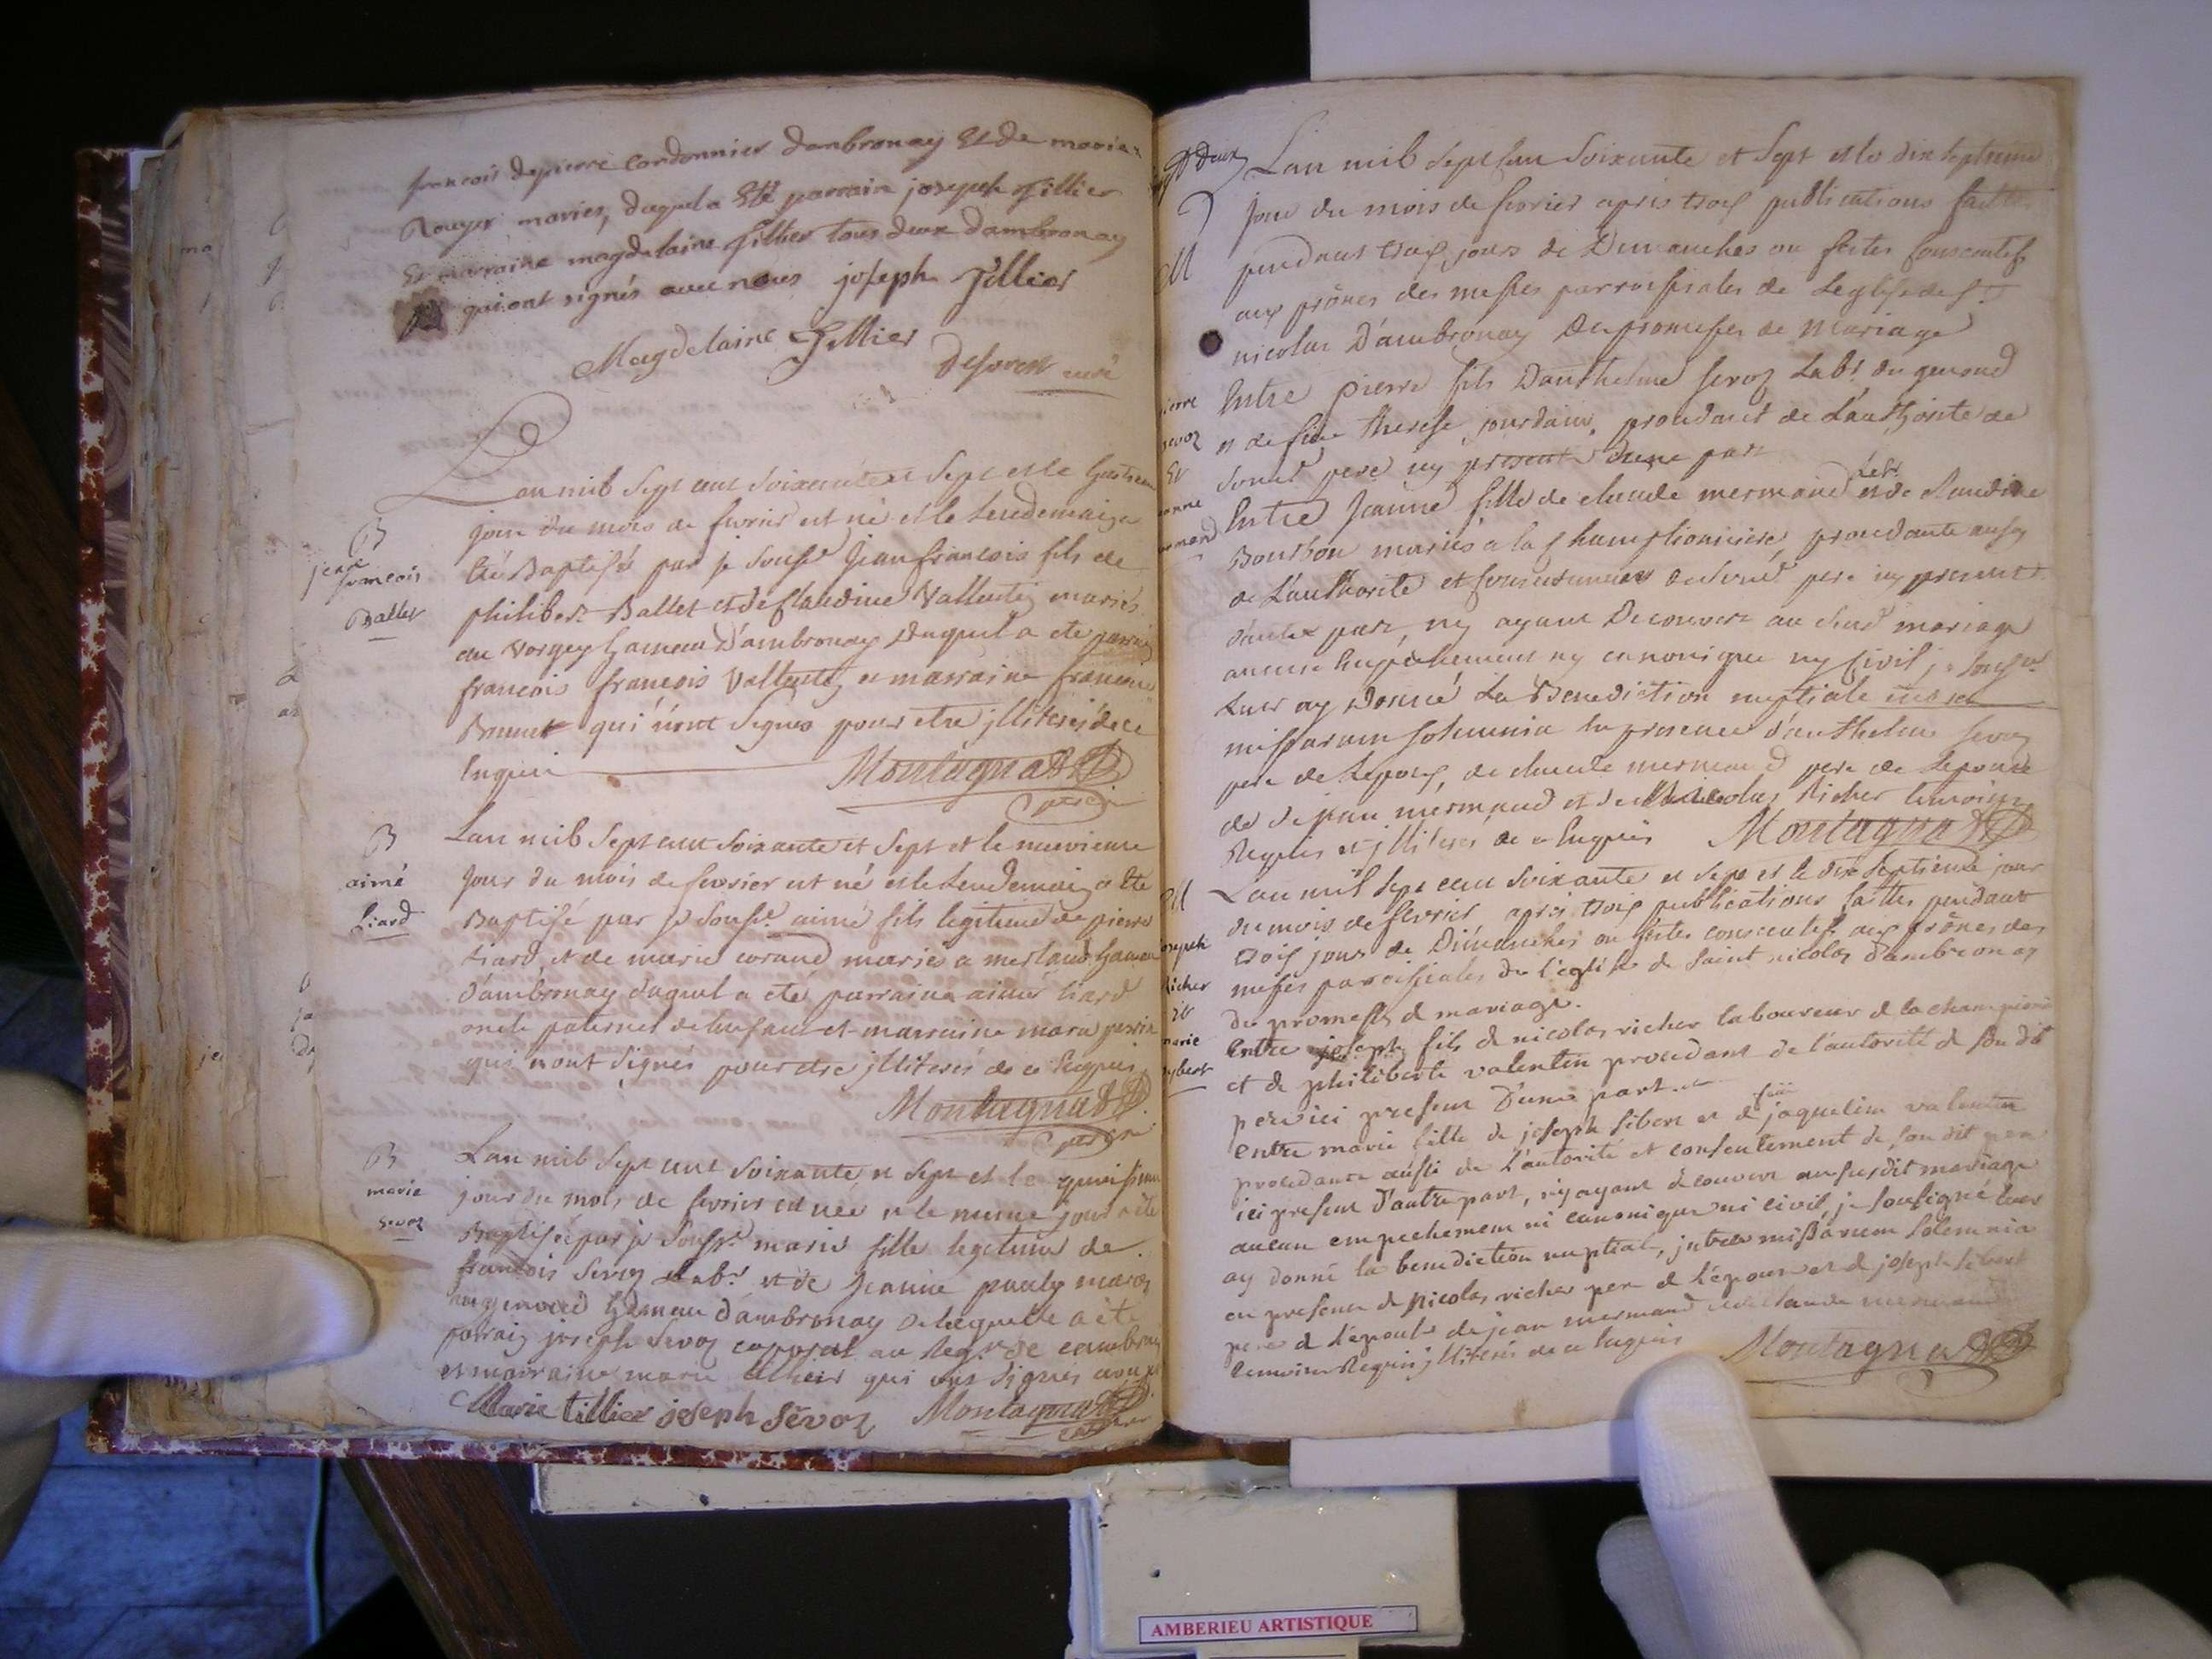 francois depierre cordonnier dambronay Et de marie
Rouyer mariés, duquel a Eté parrain joseph tillier
Et marraine magdelaine tillier tous deux dambronay
qui ont signés avec nous joseph Tillier
Magdelaine Tillier
curé
L'an mil sept cent soixante et sept et le huitieme
jour du mois de fevrier est né et le lendemain a
été Baptisé par je souss.é Jean francois fils de
philibert Ballet et de Claudine Vallentin mariés
au vorgey hameau D'ambronay Duquel a ete parrain
francois francois Vallentin et marraine francoise
Bonnet qui n'ont signés pour etre jlliterés de ce
Enquis
Montagnat
B
jean
francois
Ballet
L'an mil sept cent soixante et sept et le neuvieme
jour du mois de fevrier est né et le lendemain a été
Baptisé par je souss.é aimé fils legitime de pierre
Liard et de marie corand mariés a merland hameau
d'ambronay duquel a eté parrain aimé Liard
oncle paternel de l'enfant et marraine mara perrin
qui n'ont signés pour etre jlliterés de ce Enquis
Montagnat
B
aimé
Liard
L'an mil sept cent soixante et sept et le quinsieme
jour du mois de fevrier est née et le meme jour a été
Baptisée par je souss.é marie fille legitime de
francois Sevoz Lab.r et de Jeanne pauly mariés
au genoud hameau d'ambronay De laquelle a été
parrain joseph Sevoz caporal au Reg.t de cambray
et marraine marie tillier qui ont signés avec
Marie tillier joseph Sévoz Montagnat
B
marie
Sevoz
L'an mil sept cent soixante et sept et le dix septieme
jour du mois de fevrier apres trois publications faittes
pendant trois jours de Dimanches ou festes consecutifs
aux prônes des messes parroissiales de Leglise de S.t
nicolas D'ambronay Des promesses de Mariage
Entre pierre fils D'anthelme Sevoz Lab.r du genoud
et de feue therese jourdain, procedant de L'authorité de
sond.t pere icy present D'une part
Entre Jeanne fille de claude mermand Lab.r et de claudine
Bourbon mariés a la championniere, procedante aussy
de L'authorité et consentement de sond.t pere icy present
d'autre part, ny ayant Decouvert au susd.t mariage
aucun Empechement ny canonique ny civil je souss.é
Leur ay Donné La Benediction nuptiale intra
missarum solemnia En presence d'anthelme Sevoz
pere de L'epoux, de claude mermand pere de L'epouse
de Jean mermand et de Nicolas Richer temoins
Requis et jlliterés de ce Enquis Montagnat
M
ierre
Sevoz
Et
anne
mermand
L'an mil sept cent soixante et sept et le dix septieme jour
du mois de fevrier apres trois publications faittes pendant
trois jours de Dimanches ou fetes consecutifs aux prônes des
messes paroissiales de l'eglise de saint nicolas d'ambronay
des promesses de mariage.
Entre joseph fils de nicolas richer laboureur de la championiere
et de philiberte valentin procedant de l'autorité de son dit
pere ici present D'une part.
Entre marie fille de joseph sibert et de feüe jaqueline valentin
procedante aussi de L'autorité et consentement de son dit pere
ici present d'autre part, n'y ayant decouvert au susdit mariage
aucun empechement ni canonique ni civil, je soussigné leur
ay donné la benediction nuptiale, intra missarum solemnia
en presence de Nicolas richer pere de l'époux et de joseph sibert
pere de l'épouse de jean mermand et de claude mermand
temoins Requis jlliterés de ce Enquis
Montagnat
M
joseph
Richer
Et
marie
sybert
AMBERIEU ARTISTIQUE